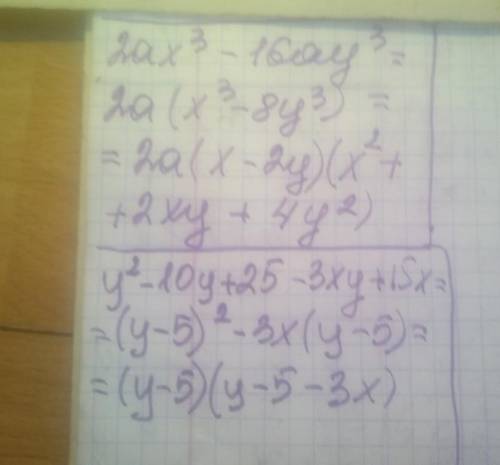 2ax³ - 16ay³ =
2a(x³ - 8y³) =
= 2a(x - 2y)(x² +
+ 2xy + 4y²)
y² - 10y + 25 - 3xy + 15x =
= (y - 5)² - 3x(y - 5) =
= (y - 5)(y - 5 - 3x)